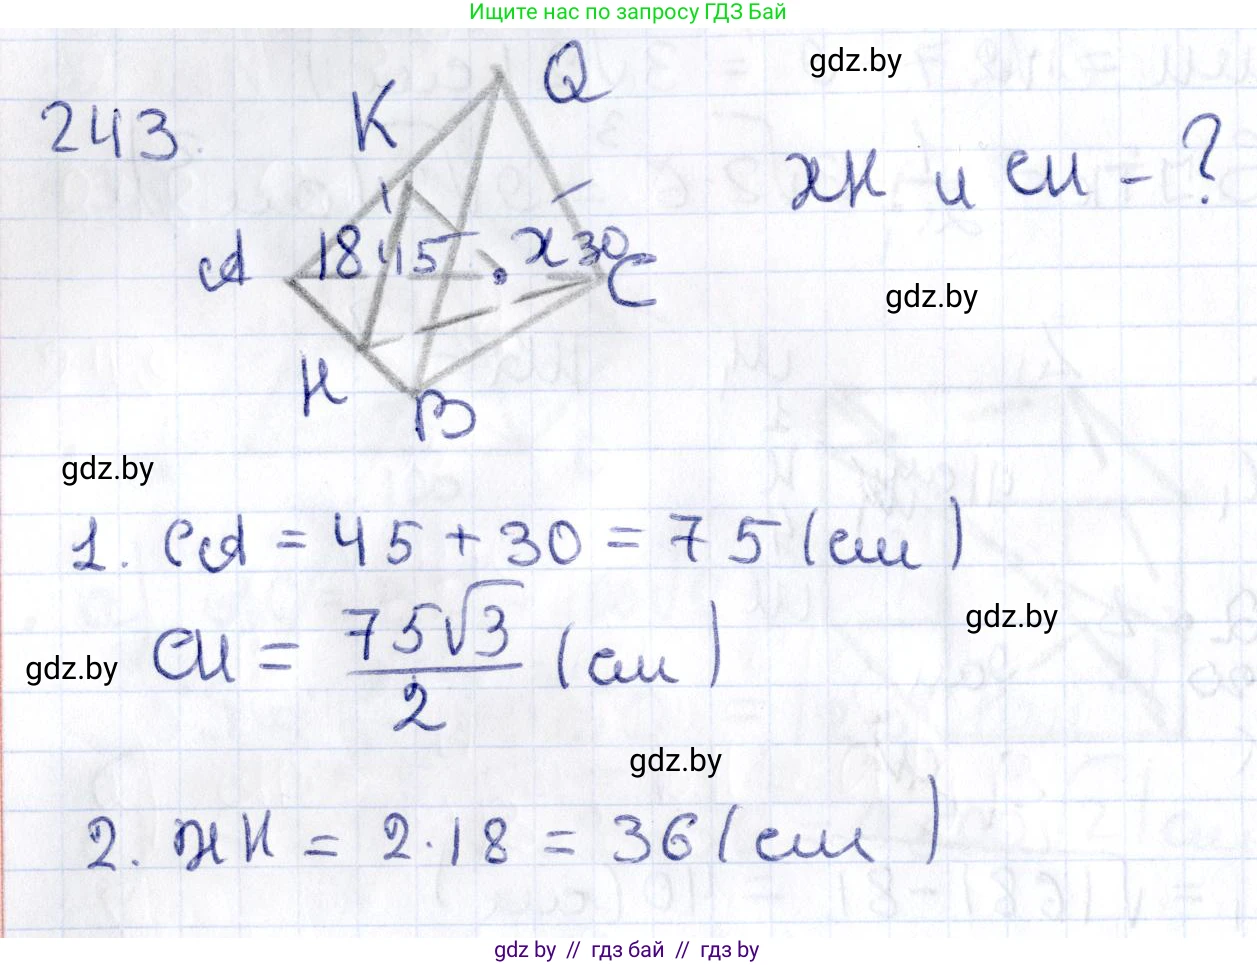 Ищите нас по запросу ГДЗ Бай
gdz.by
243.
K
Q
жн и см - ?
A
18
45
ж
30
C
gdz.by
H
B
gdz.by
1. CA = 45 + 30 = 75 (см)
gdz.by
CM = 75√3/2 (см)
gdz.by
gdz.by
2. жн = 2·18 = 36 (см)
gdz.by // гдз бай // гдз by